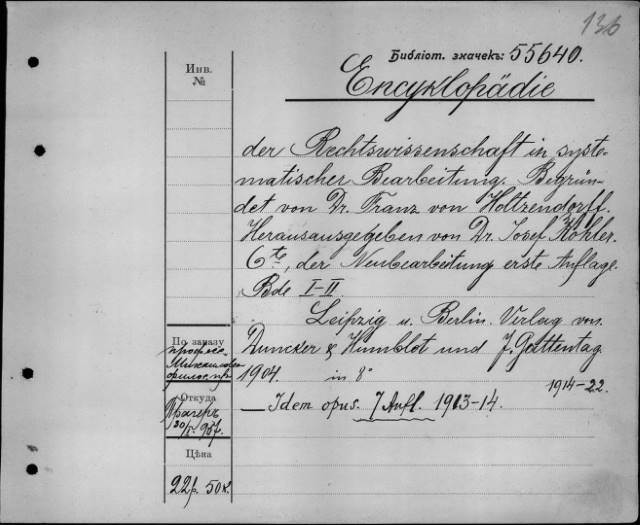 136
Библіот. значекъ: 55640.
Инв.
№
Encyklopädie
der Rechtswissenschaft in syste-
matischer Bearbeitung. Begrün-
det von Dr. Franz von Holtzendorff.
Herausausgegeben von Dr. Josef Kohler.
6te, der Neubearbeitung erste Auflage.
Bde I-II.
Leipzig u. Berlin. Verlag von
Duncker & Humblot und J. Guttentag
1904. in 8°
1914-22.
— Idem opus. 7 Aufl. 1913-14.
По заказу
Откуда
Цѣна
22р. 50к.